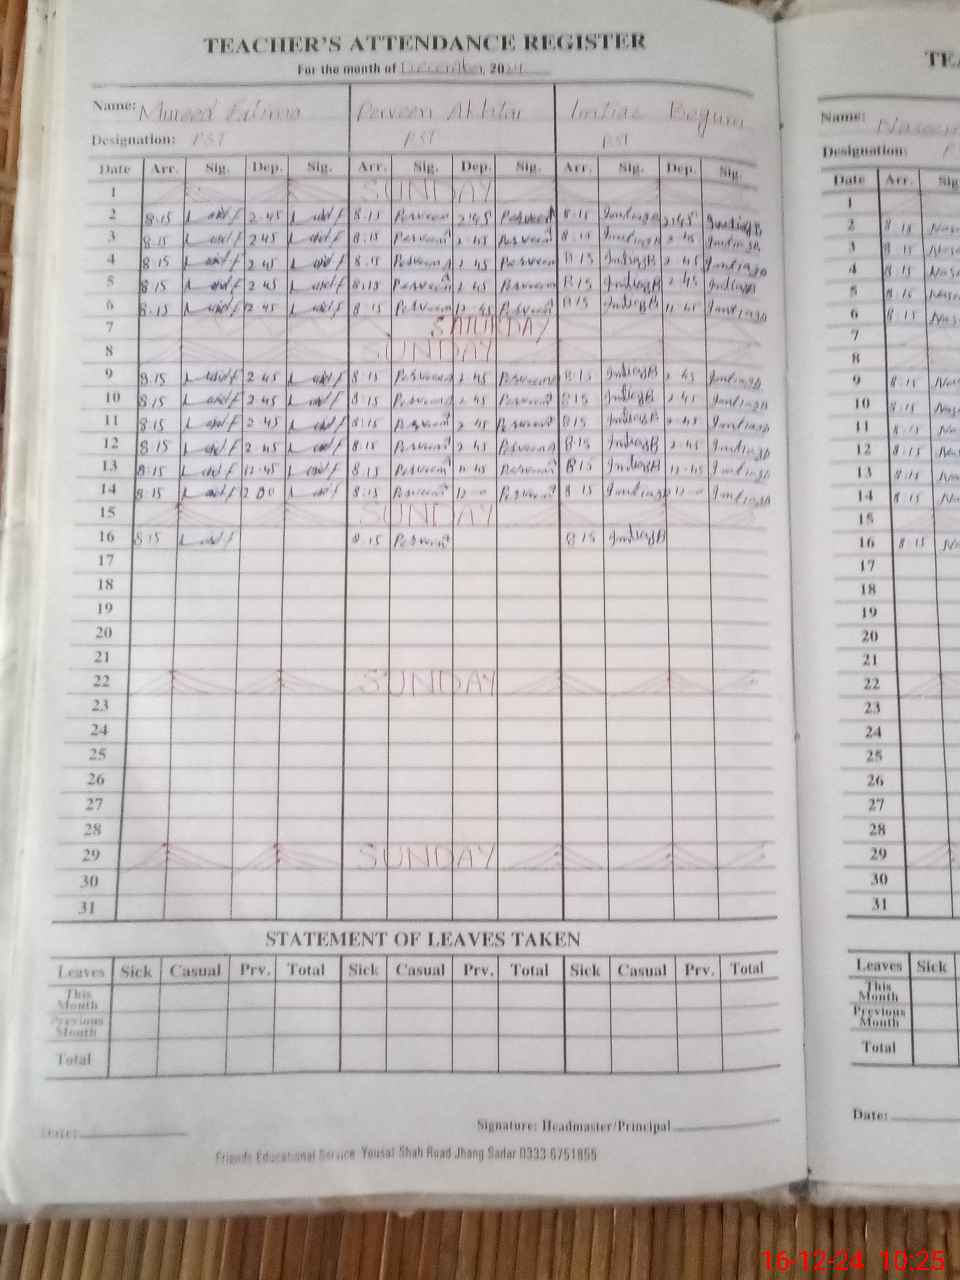 TEACHER'S ATTENDANCE REGISTER
For the month of December, 2024
Name: Mureed Fatima Perveen Akhtar Imtiaz Begum
Designation: PST PST PST
Date Arr. Sig. Dep. Sig. Arr. Sig. Dep. Sig. Arr. Sig. Dep. Sig.
1 SUNDAY
2 8:15 2:45 8:15 Perveen 2:45 Perveen 8:15 ImtiazB 2:45 ImtiazB
3 8:15 2:45 8:15 Perveen 2:45 Perveen 8:15 ImtiazB 2:45 ImtiazB
4 8:15 2:45 8:15 Perveen 2:45 Perveen 8:15 ImtiazB 2:45 ImtiazB
5 8:15 2:45 8:15 Perveen 2:45 Perveen 8:15 ImtiazB 2:45 ImtiazB
6 8:15 12:45 8:15 Perveen 12:45 Perveen 8:15 ImtiazB 12:45 ImtiazB
7 SATURDAY
8 SUNDAY
9 8:15 2:45 8:15 Perveen 2:45 Perveen 8:15 ImtiazB 2:45 ImtiazB
10 8:15 2:45 8:15 Perveen 2:45 Perveen 8:15 ImtiazB 2:45 ImtiazB
11 8:15 2:45 8:15 Perveen 2:45 Perveen 8:15 ImtiazB 2:45 ImtiazB
12 8:15 2:45 8:15 Perveen 2:45 Perveen 8:15 ImtiazB 2:45 ImtiazB
13 8:15 12:45 8:15 Perveen 12:45 Perveen 8:15 ImtiazB 12:45 ImtiazB
14 8:15 8:15 Perveen Perveen 8:15 ImtiazB ImtiazB
15 SUNDAY
16 8:15 8:15 Perveen 8:15 ImtiazB
17
18
19
20
21
22 SUNDAY
23
24
25
26
27
28
29 SUNDAY
30
31
STATEMENT OF LEAVES TAKEN
Leaves Sick Casual Prv. Total Sick Casual Prv. Total Sick Casual Prv. Total
This Month
Previous Month
Total
Date:
Signature: Headmaster/Principal
Friends Educational Service Yousaf Shah Road Jhang Sadar 0333-6751855
TEA
Name:
Designation:
Date Arr. Sig
1
2 8:15
3 8:15
4 8:15
5 8:15
6 8:15
7
8
9 8:15
10 8:15
11 8:15
12 8:15
13 8:15
14 8:15
15
16 8:15
17
18
19
20
21
22
23
24
25
26
27
28
29
30
31
Leaves Sick
This Month
Previous Month
Total
Date:
16-12-24 10:25